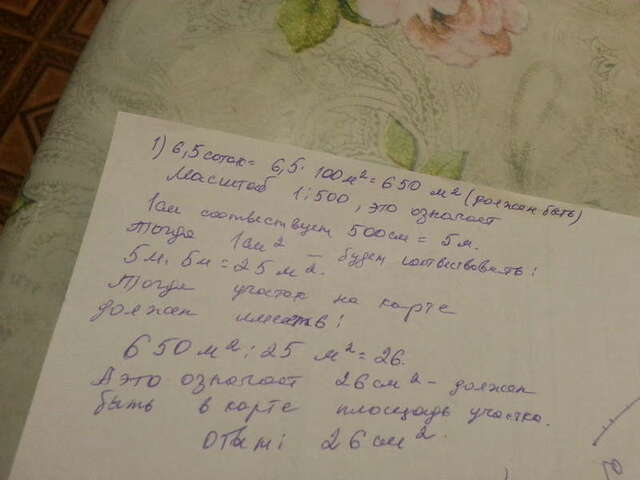 1) 6,5 соток = 6,5 · 100 м² = 650 м² (должен быть)
Масштаб 1:500, это означает
1 см соотвествует 500 см = 5 м.
Тогда 1 см² – будет соотвествовать:
5 м · 5 м = 25 м².
Тогда участок на карте
должен иметь:
650 м² : 25 м² = 26.
А это означает 26 см² – должен
быть в карте площадь участка.
Ответ: 26 см².